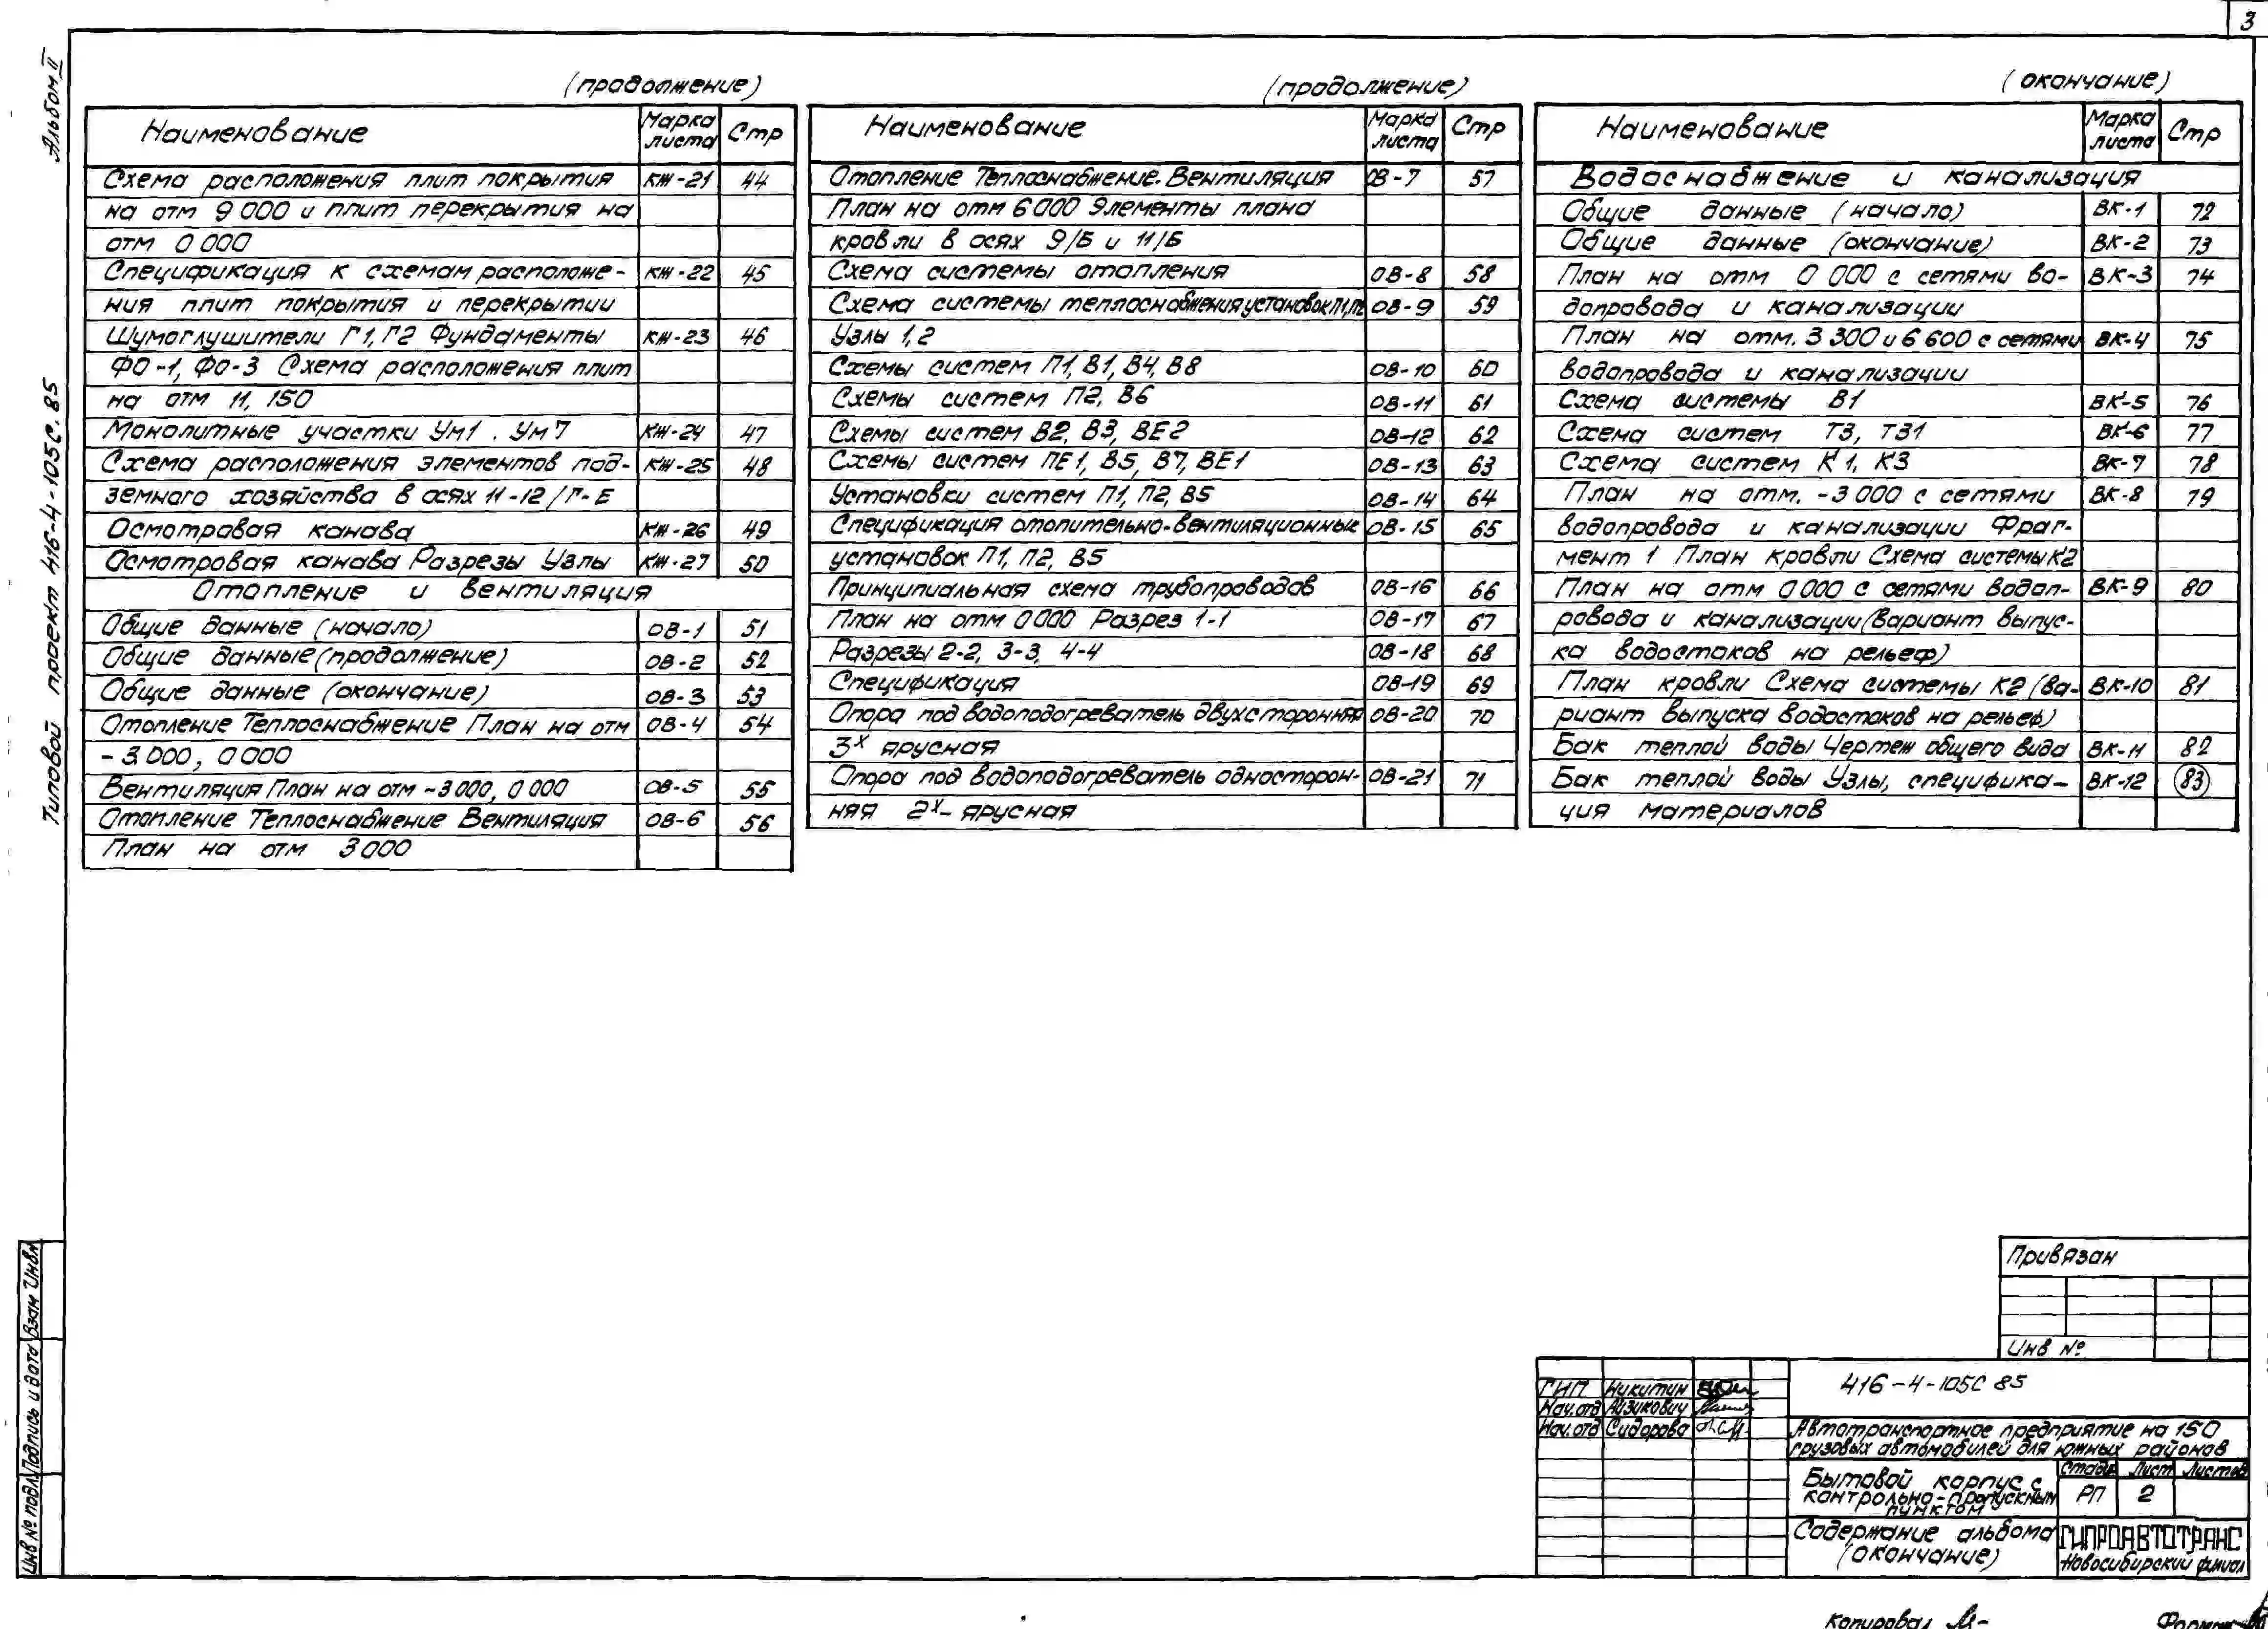 3
Альбом II
Типовой проект 416-4-105С.85
(продолжение)
Наименование Марка листа Стр
Схема расположения плит покрытия КЖ-21 44
на отм 9 000 и плит перекрытия на
отм 0 000
Спецификация к схемам расположе- КЖ-22 45
ния плит покрытия и перекрытии
Шумоглушители Г1, Г2 Фундаменты КЖ-23 46
ФО-1, ФО-3 Схема расположения плит
на отм 11, 150
Монолитные участки Ум1 . Ум7 КЖ-24 47
Схема расположения элементов под- КЖ-25 48
земного хозяйства в осях 11-12/Г-Е
Осмотровая канава КЖ-26 49
Осмотровая канава Разрезы Узлы КЖ-27 50
Отопление и вентиляция
Общие данные (начало) ОВ-1 51
Общие данные (продолжение) ОВ-2 52
Общие данные (окончание) ОВ-3 53
Отопление Теплоснабжение План на отм ОВ-4 54
-3.000, 0 000
Вентиляция План на отм -3 000, 0 000 ОВ-5 55
Отопление Теплоснабжение Вентиляция ОВ-6 56
План на отм 3 000
(продолжение)
Наименование Марка листа Стр
Отопление Теплоснабжение. Вентиляция ОВ-7 57
План на отм 6 000 Элементы плана
кровли в осях 9/Б и 11/Б
Схема системы отопления ОВ-8 58
Схема системы теплоснабжения установок П1, П2 ОВ-9 59
Узлы 1,2
Схемы систем П1, В1, В4, В8 ОВ-10 60
Схемы систем П2, В6 ОВ-11 61
Схемы систем В2, В3, ВЕ2 ОВ-12 62
Схемы систем ПЕ1, В5, В7, ВЕ1 ОВ-13 63
Установки систем П1, П2, В5 ОВ-14 64
Спецификация отопительно-вентиляционных ОВ-15 65
установок П1, П2, В5
Принципиальная схема трубопроводов ОВ-16 66
План на отм 0 000 Разрез 1-1 ОВ-17 67
Разрезы 2-2, 3-3, 4-4 ОВ-18 68
Спецификация ОВ-19 69
Опора под водоподогреватель двухсторонняя ОВ-20 70
3х ярусная
Опора под водоподогреватель односторон- ОВ-21 71
няя 2х- ярусная
(окончание)
Наименование Марка листа Стр
Водоснабжение и канализация
Общие данные (начало) ВК-1 72
Общие данные (окончание) ВК-2 73
План на отм 0 000 с сетями во- ВК-3 74
допровода и канализации
План на отм. 3 300 и 6 600 с сетями ВК-4 75
водопровода и канализации
Схема системы В1 ВК-5 76
Схема систем Т3, Т31 ВК-6 77
Схема систем К1, К3 ВК-7 78
План на отм. -3 000 с сетями ВК-8 79
водопровода и канализации Фраг-
мент 1 План кровли Схема системы К2
План на отм 0 000 с сетями водоп- ВК-9 80
ровода и канализации (вариант выпус-
ка водостоков на рельеф)
План кровли Схема системы К2 (ва- ВК-10 81
риант выпуска водостоков на рельеф)
Бак теплой воды Чертеж общего вида ВК-11 82
Бак теплой воды Узлы, специфика- ВК-12 83
ция материалов
Привязан
Инв №
ГИП Никитин
Нач.отд Айзикович
Нач.отд Сидорова
416-4-105С 85
Автотранспортное предприятие на 150
грузовых автомобилей для южных районов
Бытовой корпус с
контрольно-пропускным
пунктом
Стадия Лист Листов
РП 2
Содержание альбома
(окончание)
ГИПРОАВТОТРАНС
Новосибирский филиал
Инв № подл Подпись и дата Взам Инв №
Копировал
Формат